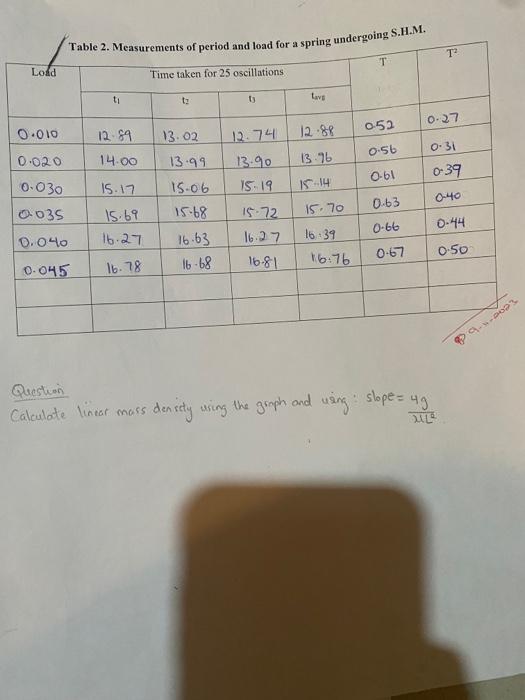 Table 2. Measurements of period and load for a spring undergoing S.H.M.
Load Time taken for 25 oscillations T T²
t₁ t₂ t₃ tavg
0.010 12.89 13.02 12.74 12.88 0.52 0.27
0.020 14.00 13.99 13.90 13.96 0.56 0.31
0.030 15.17 15.06 15.19 15.14 0.61 0.39
0.035 15.69 15.68 15.72 15.70 0.63 0.40
0.040 16.27 16.63 16.27 16.39 0.66 0.44
0.045 16.78 16.68 16.81 16.76 0.67 0.50
Question
Calculate linear mass density using the graph and using: slope = 4g